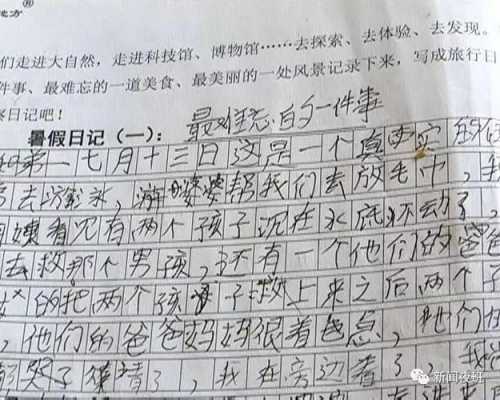 们走进大自然，走进科技馆、博物馆……去探索、去体验、去发现。
件事、最难忘的一道美食、最美丽的一处风景记录下来，写成旅行日
日记吧！
暑假日记（一）： 最难忘的一件事
一七月十三日这是一个真实的
去游泳，游婆婆帮我们去放毛巾，我
姨看见有两个孩子沉在水底不动了
去救那个男孩，还有一个他们的爸爸
的把两个孩子救上来之后两个
，他们的爸爸妈妈很着急点，他们
哭了，我在旁边看了
新闻夜班